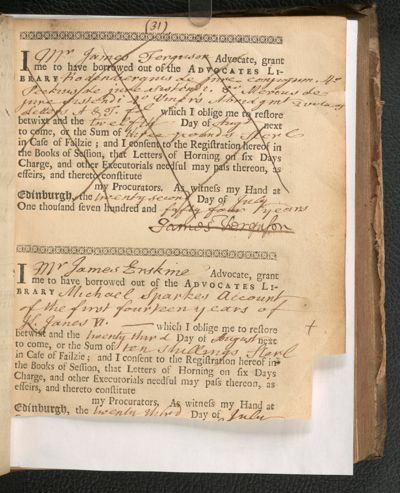 (31)
I Mr James Ferguson Advocate, grant
me to have borrowed out of the ADVOCATES LI-
BRARY de jure
de
jure
which I oblige me to restore
betwixt and the twelfth Day of Augt next
to come, or the Sum of three pounds Sterl
in Case of Failzie; and I consent to the Registration hereof in
the Books of Session, that Letters of Horning on six Days
Charge, and other Executorials needful may pass thereon, as
effeirs, and thereto constitute
my Procurators. As witness my Hand at
Edinburgh, the twenty second Day of July
One thousand seven hundred and fifty four years
James Ferguson
I Mr James Erskine Advocate, grant
me to have borrowed out of the ADVOCATES LI-
BRARY Michael Sparkes Account
of the first fourteen years of
K. James VI. which I oblige me to restore
betwixt and the twenty third Day of August next
to come, or the Sum of ten shillings Sterl
in Case of Failzie; and I consent to the Registration hereof in
the Books of Session, that Letters of Horning on six Days
Charge, and other Executorials needful may pass thereon, as
effeirs, and thereto constitute
my Procurators. As witness my Hand at
Edinburgh, the twenty third Day of July